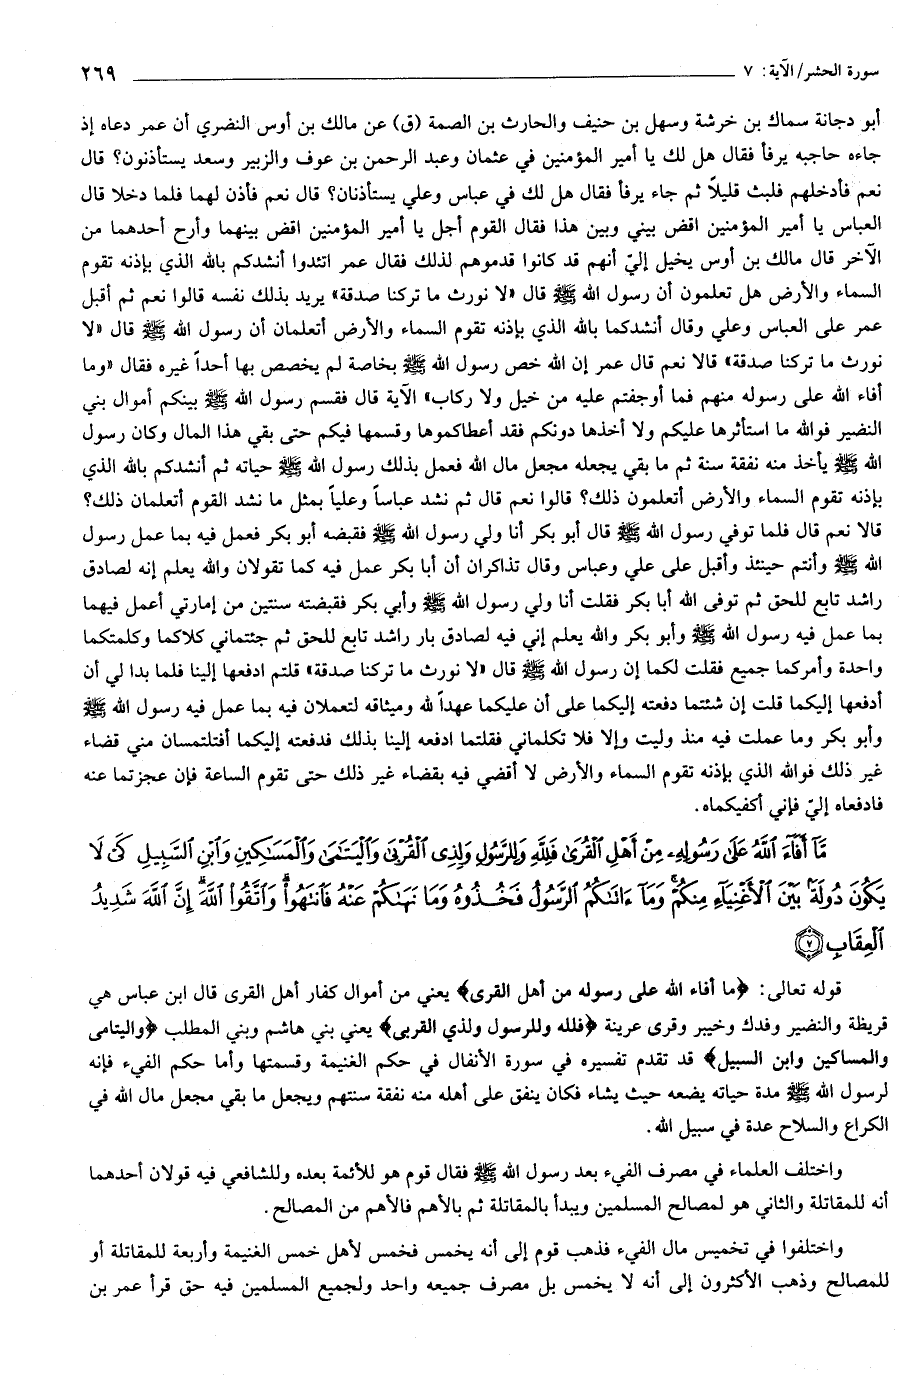 سورة الحشر/ الآية: ٧ ٢٦٩
أبو دجانة سماك بن خرشة وسهل بن حنيف والحارث بن الصمة (ق) عن مالك بن أوس النضري أن عمر دعاه إذ
جاءه حاجبه يرفأ فقال هل لك يا أمير المؤمنين في عثمان وعبد الرحمن بن عوف والزبير وسعد يستأذنون؟ قال
نعم فأدخلهم فلبث قليلاً ثم جاء يرفأ فقال هل لك في عباس وعلي يستأذنان؟ قال نعم فأذن لهما فلما دخلا قال
العباس يا أمير المؤمنين اقض بيني وبين هذا فقال القوم أجل يا أمير المؤمنين اقض بينهما وأرح أحدهما من
الآخر قال مالك بن أوس يخيل إليّ أنهم قد كانوا قدموهم لذلك فقال عمر اتئدوا أنشدكم بالله الذي بإذنه تقوم
السماء والأرض هل تعلمون أن رسول الله ﷺ قال «لا نورث ما تركنا صدقة» يريد بذلك نفسه قالوا نعم ثم أقبل
عمر على العباس وعلي وقال أنشدكما بالله الذي بإذنه تقوم السماء والأرض أتعلمان أن رسول الله ﷺ قال «لا
نورث ما تركنا صدقة» قالا نعم قال عمر إن الله خص رسول الله ﷺ بخاصة لم يخصص بها أحداً غيره فقال «وما
أفاء الله على رسوله منهم فما أوجفتم عليه من خيل ولا ركاب» الآية قال فقسم رسول الله ﷺ بينكم أموال بني
النضير فوالله ما استأثرها عليكم ولا أخذها دونكم فقد أعطاكموها وقسمها فيكم حتى بقي هذا المال وكان رسول
الله ﷺ يأخذ منه نفقة سنة ثم ما بقي يجعله مجعل مال الله فعمل بذلك رسول الله ﷺ حياته ثم أنشدكم بالله الذي
بإذنه تقوم السماء والأرض أتعلمون ذلك؟ قالوا نعم قال ثم نشد عباساً وعلياً بمثل ما نشد القوم أتعلمان ذلك؟
قالا نعم قال فلما توفي رسول الله ﷺ قال أبو بكر أنا ولي رسول الله ﷺ فقبضه أبو بكر فعمل فيه بما عمل رسول
الله ﷺ وأنتم حينئذ وأقبل على علي وعباس وقال تذاكران أن أبا بكر عمل فيه كما تقولان والله يعلم إنه لصادق
راشد تابع للحق ثم توفى الله أبا بكر فقلت أنا ولي رسول الله ﷺ وأبي بكر فقبضته سنتين من إمارتي أعمل فيهما
بما عمل فيه رسول الله ﷺ وأبو بكر والله يعلم إني فيه لصادق بار راشد تابع للحق ثم جئتماني كلاكما وكلمتكما
واحدة وأمركما جميع فقلت لكما إن رسول الله ﷺ قال «لا نورث ما تركنا صدقة» قلتم ادفعها إلينا فلما بدا لي أن
أدفعها إليكما قلت إن شئتما دفعته إليكما على أن عليكما عهداً لله وميثاقه لتعملان فيه بما عمل فيه رسول الله ﷺ
وأبو بكر وما عملت فيه منذ وليت وإلا فلا تكلماني فقلتما ادفعه إلينا بذلك فدفعته إليكما أفتلتمسان مني قضاء
غير ذلك فوالله الذي بإذنه تقوم السماء والأرض لا أقضي فيه بقضاء غير ذلك حتى تقوم الساعة فإن عجزتما عنه
فادفعاه إليّ فإني أكفيكماه.
مَّآ أَفَآءَ ٱللَّهُ عَلَىٰ رَسُولِهِۦ مِنْ أَهْلِ ٱلْقُرَىٰ فَلِلَّهِ وَلِلرَّسُولِ وَلِذِى ٱلْقُرْبَىٰ وَٱلْيَتَٰمَىٰ وَٱلْمَسَٰكِينِ وَٱبْنِ ٱلسَّبِيلِ كَىْ لَا
يَكُونَ دُولَةًۢ بَيْنَ ٱلْأَغْنِيَآءِ مِنكُمْ ۚ وَمَآ ءَاتَىٰكُمُ ٱلرَّسُولُ فَخُذُوهُ وَمَا نَهَىٰكُمْ عَنْهُ فَٱنتَهُوا۟ ۚ وَٱتَّقُوا۟ ٱللَّهَ ۖ إِنَّ ٱللَّهَ شَدِيدُ
ٱلْعِقَابِ ٧
قوله تعالى: ﴿ما أفاء الله على رسوله من أهل القرى﴾ يعني من أموال كفار أهل القرى قال ابن عباس هي
قريظة والنضير وفدك وخيبر وقرى عرينة ﴿فلله وللرسول ولذي القربى﴾ يعني بني هاشم وبني المطلب ﴿واليتامى
والمساكين وابن السبيل﴾ قد تقدم تفسيره في سورة الأنفال في حكم الغنيمة وقسمتها وأما حكم الفيء فإنه
لرسول الله ﷺ مدة حياته يضعه حيث يشاء فكان ينفق على أهله منه نفقة سنتهم ويجعل ما بقي مجعل مال الله في
الكراع والسلاح عدة في سبيل الله.
واختلف العلماء في مصرف الفيء بعد رسول الله ﷺ فقال قوم هو للأئمة بعده وللشافعي فيه قولان أحدهما
أنه للمقاتلة والثاني هو لمصالح المسلمين ويبدأ بالمقاتلة ثم بالأهم فالأهم من المصالح.
واختلفوا في تخميس مال الفيء فذهب قوم إلى أنه يخمس فخمس لأهل خمس الغنيمة وأربعة للمقاتلة أو
للمصالح وذهب الأكثرون إلى أنه لا يخمس بل مصرف جميعه واحد ولجميع المسلمين فيه حق قرأ عمر بن